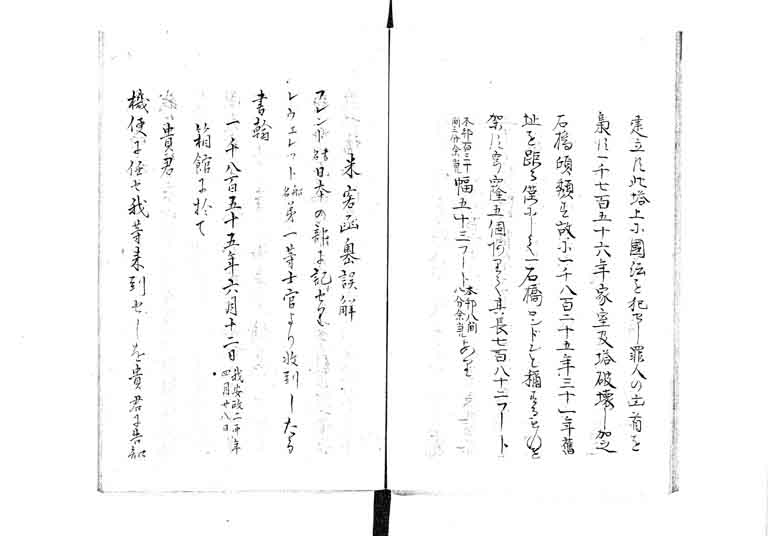 建立す此塔上に國法を犯せし罪人の首を
梟す一千七百五十六年家室及塔破壊し加之
石橋頽頽す故に一千八百二十五年三十一年舊
址を距る一石橋ロンドンを稱するものを
架す穹窿五個ありて其長七百八十二フート
本邦百三十間三分余
幅五十三フート
本邦八間八分余
あり
米客函墓誤解
日本の誌に記せる
レウェレット船第一等士官より收到したる
書輪
一千八百五十五年六月十二日
我安政二卯年四月廿八日
箱館に於て
貴君
機便に任せ我等来到せしを貴君に告知